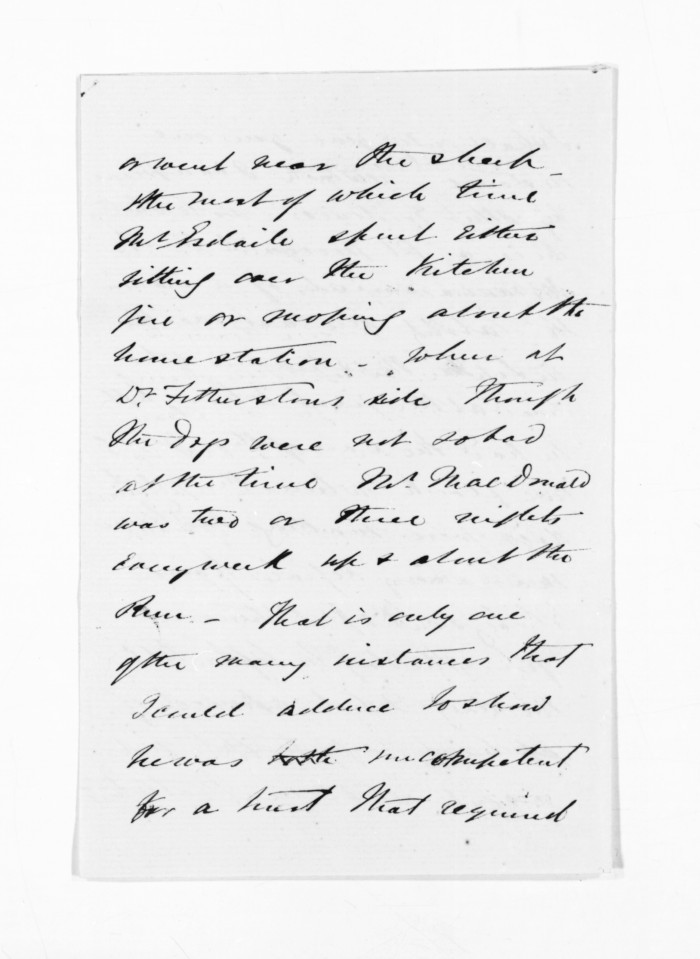 or went near the sheep -
the most of which time
Mr. Esdaile spent Either
sitting over the Kitchen
fire or moping about the
home station - when at
Dr. Fetherstons side though
the dogs were not so bad
at the time Mr. MacDonald
was two or three nights
Every week up & about the
Run - That is only one
of the many instances that
I could adduce to show
he was incompetent
for a trust that required